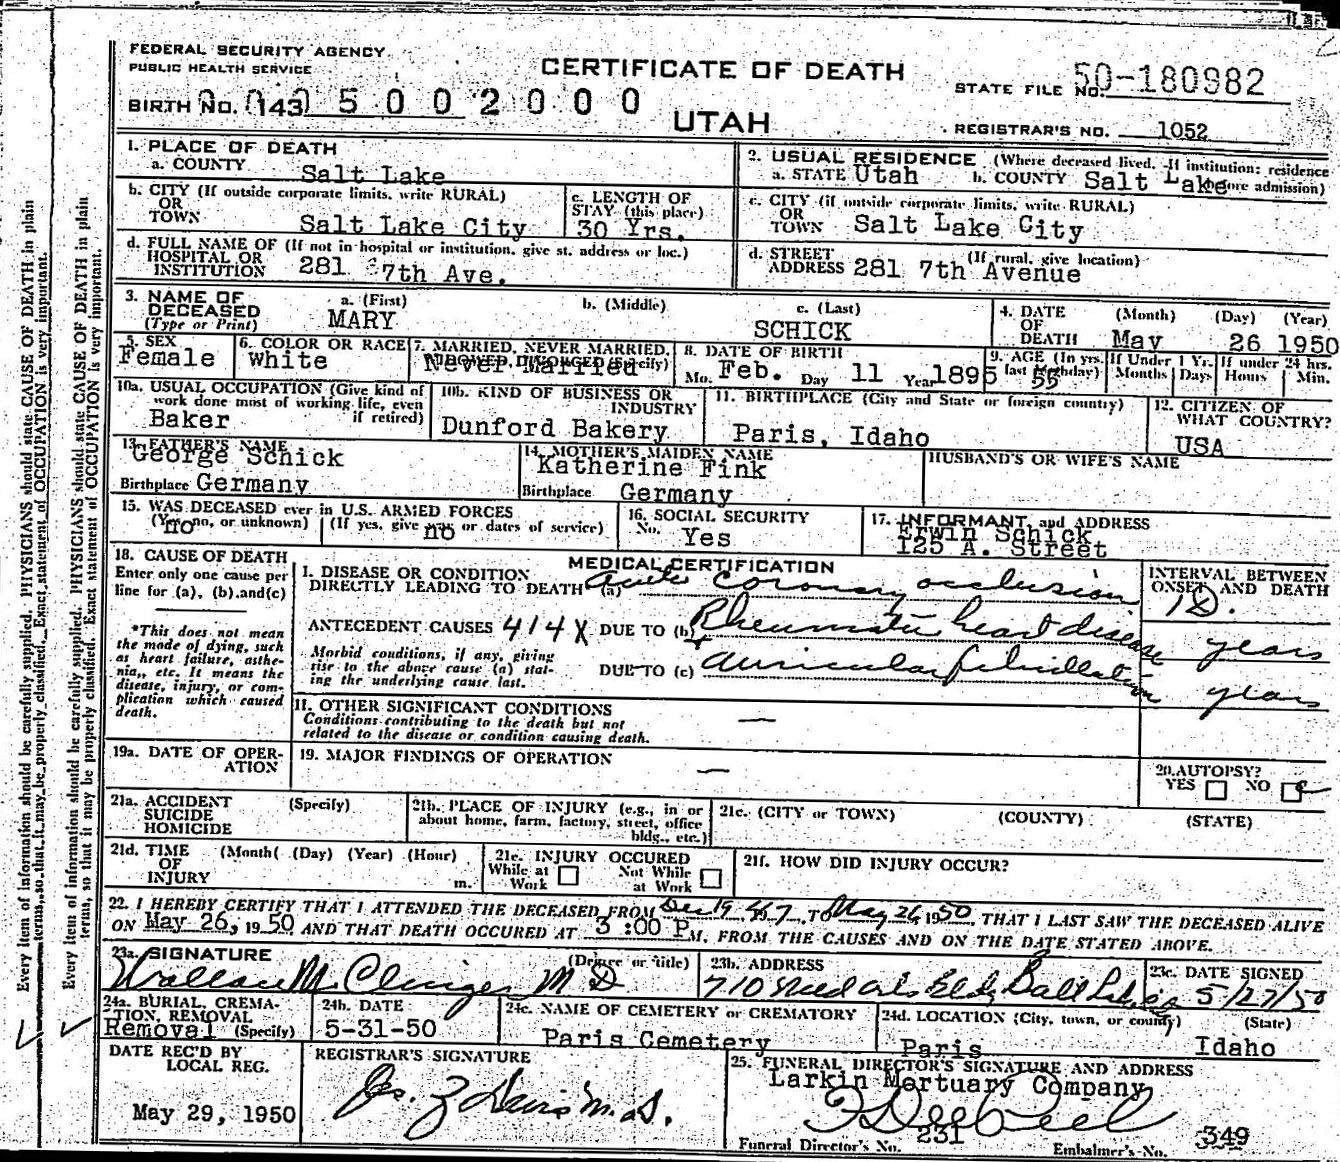 FEDERAL SECURITY AGENCY
PUBLIC HEALTH SERVICE
CERTIFICATE OF DEATH
STATE FILE NO. 50-180982
BIRTH NO. 143 5 0 0 2 0 0 0
UTAH
REGISTRAR'S NO. 1052
1. PLACE OF DEATH
a. COUNTY Salt Lake
2. USUAL RESIDENCE (Where deceased lived. If institution: residence before admission)
a. STATE Utah b. COUNTY Salt Lake
b. CITY (If outside corporate limits, write RURAL)
OR
TOWN Salt Lake City
c. LENGTH OF
STAY (this place)
30 Yrs.
c. CITY (if outside corporate limits, write RURAL)
OR
TOWN Salt Lake City
d. FULL NAME OF (If not in hospital or institution, give st. address or loc.)
HOSPITAL OR
INSTITUTION 281 7th Ave.
d. STREET (If rural, give location)
ADDRESS 281 7th Avenue
3. NAME OF
DECEASED
(Type or Print)
a. (First) b. (Middle) c. (Last)
MARY SCHICK
4. DATE
OF
DEATH
(Month) (Day) (Year)
May 26 1950
5. SEX
Female
6. COLOR OR RACE
White
7. MARRIED, NEVER MARRIED,
WIDOWED, DIVORCED (Specify)
Never Married
8. DATE OF BIRTH
Mo. Feb. Day 11 Year 1895
9. AGE (In yrs.
last birthday)
55
If Under 1 Yr.
Months Days
If under 24 hrs.
Hours Min.
10a. USUAL OCCUPATION (Give kind of
work done most of working life, even
if retired)
Baker
10b. KIND OF BUSINESS OR
INDUSTRY
Dunford Bakery
11. BIRTHPLACE (City and State or foreign country)
Paris, Idaho
12. CITIZEN OF
WHAT COUNTRY?
USA
13. FATHER'S NAME
George Schick
Birthplace Germany
14. MOTHER'S MAIDEN NAME
Katherine Fink
Birthplace Germany
HUSBAND'S OR WIFE'S NAME
15. WAS DECEASED ever in U.S. ARMED FORCES
(Yes, no, or unknown) (If yes, give war or dates of service)
no no
16. SOCIAL SECURITY
No. Yes
17. INFORMANT and ADDRESS
Erwin Schick
125 A. Street
18. CAUSE OF DEATH
Enter only one cause per
line for (a), (b), and (c)
*This does not mean
the mode of dying, such
as heart failure, asthe-
nia, etc. It means the
disease, injury, or com-
plication which caused
death.
MEDICAL CERTIFICATION
I. DISEASE OR CONDITION
DIRECTLY LEADING TO DEATH (a) acute coronary occlusion
ANTECEDENT CAUSES 414X DUE TO (b) Rheumatic heart disease
Morbid conditions, if any, giving
rise to the above cause (a) stat-
ing the underlying cause last.
DUE TO (c) auricular fibrillation
INTERVAL BETWEEN
ONSET AND DEATH
1D.
years
years
II. OTHER SIGNIFICANT CONDITIONS
Conditions contributing to the death but not
related to the disease or condition causing death.
—
19a. DATE OF OPER-
ATION
19. MAJOR FINDINGS OF OPERATION
—
20. AUTOPSY?
YES NO
21a. ACCIDENT (Specify)
SUICIDE
HOMICIDE
21b. PLACE OF INJURY (e.g., in or
about home, farm, factory, street, office
bldg., etc.)
21c. (CITY or TOWN) (COUNTY) (STATE)
21d. TIME (Month( (Day) (Year) (Hour)
OF
INJURY m.
21e. INJURY OCCURED
While at Work Not While at Work
21f. HOW DID INJURY OCCUR?
22. I HEREBY CERTIFY THAT I ATTENDED THE DECEASED FROM Dec 19 47, TO May 26, 1950, THAT I LAST SAW THE DECEASED ALIVE
ON May 26, 1950 AND THAT DEATH OCCURED AT 3:00 P M. FROM THE CAUSES AND ON THE DATE STATED ABOVE.
23a. SIGNATURE (Degree or title)
M D
23b. ADDRESS
710
23c. DATE SIGNED
5/27/50
24a. BURIAL, CREMA-
TION, REMOVAL
Removal (Specify)
24b. DATE
5-31-50
24c. NAME OF CEMETERY OR CREMATORY
Paris Cemetery
24d. LOCATION (City, town, or county) (State)
Paris Idaho
DATE REC'D BY
LOCAL REG.
May 29, 1950
REGISTRAR'S SIGNATURE
25. FUNERAL DIRECTOR'S SIGNATURE AND ADDRESS
Larkin Mortuary Company
Funeral Director's No. 231 Embalmer's No. 349
Every item of information should be carefully supplied. PHYSICIANS should state CAUSE OF DEATH in plain
terms, so that it may be properly classified. Exact statement of OCCUPATION is very important.
Every item of information should be carefully supplied. PHYSICIANS should state CAUSE OF DEATH in plain
terms, so that it may be properly classified. Exact statement of OCCUPATION is very important.